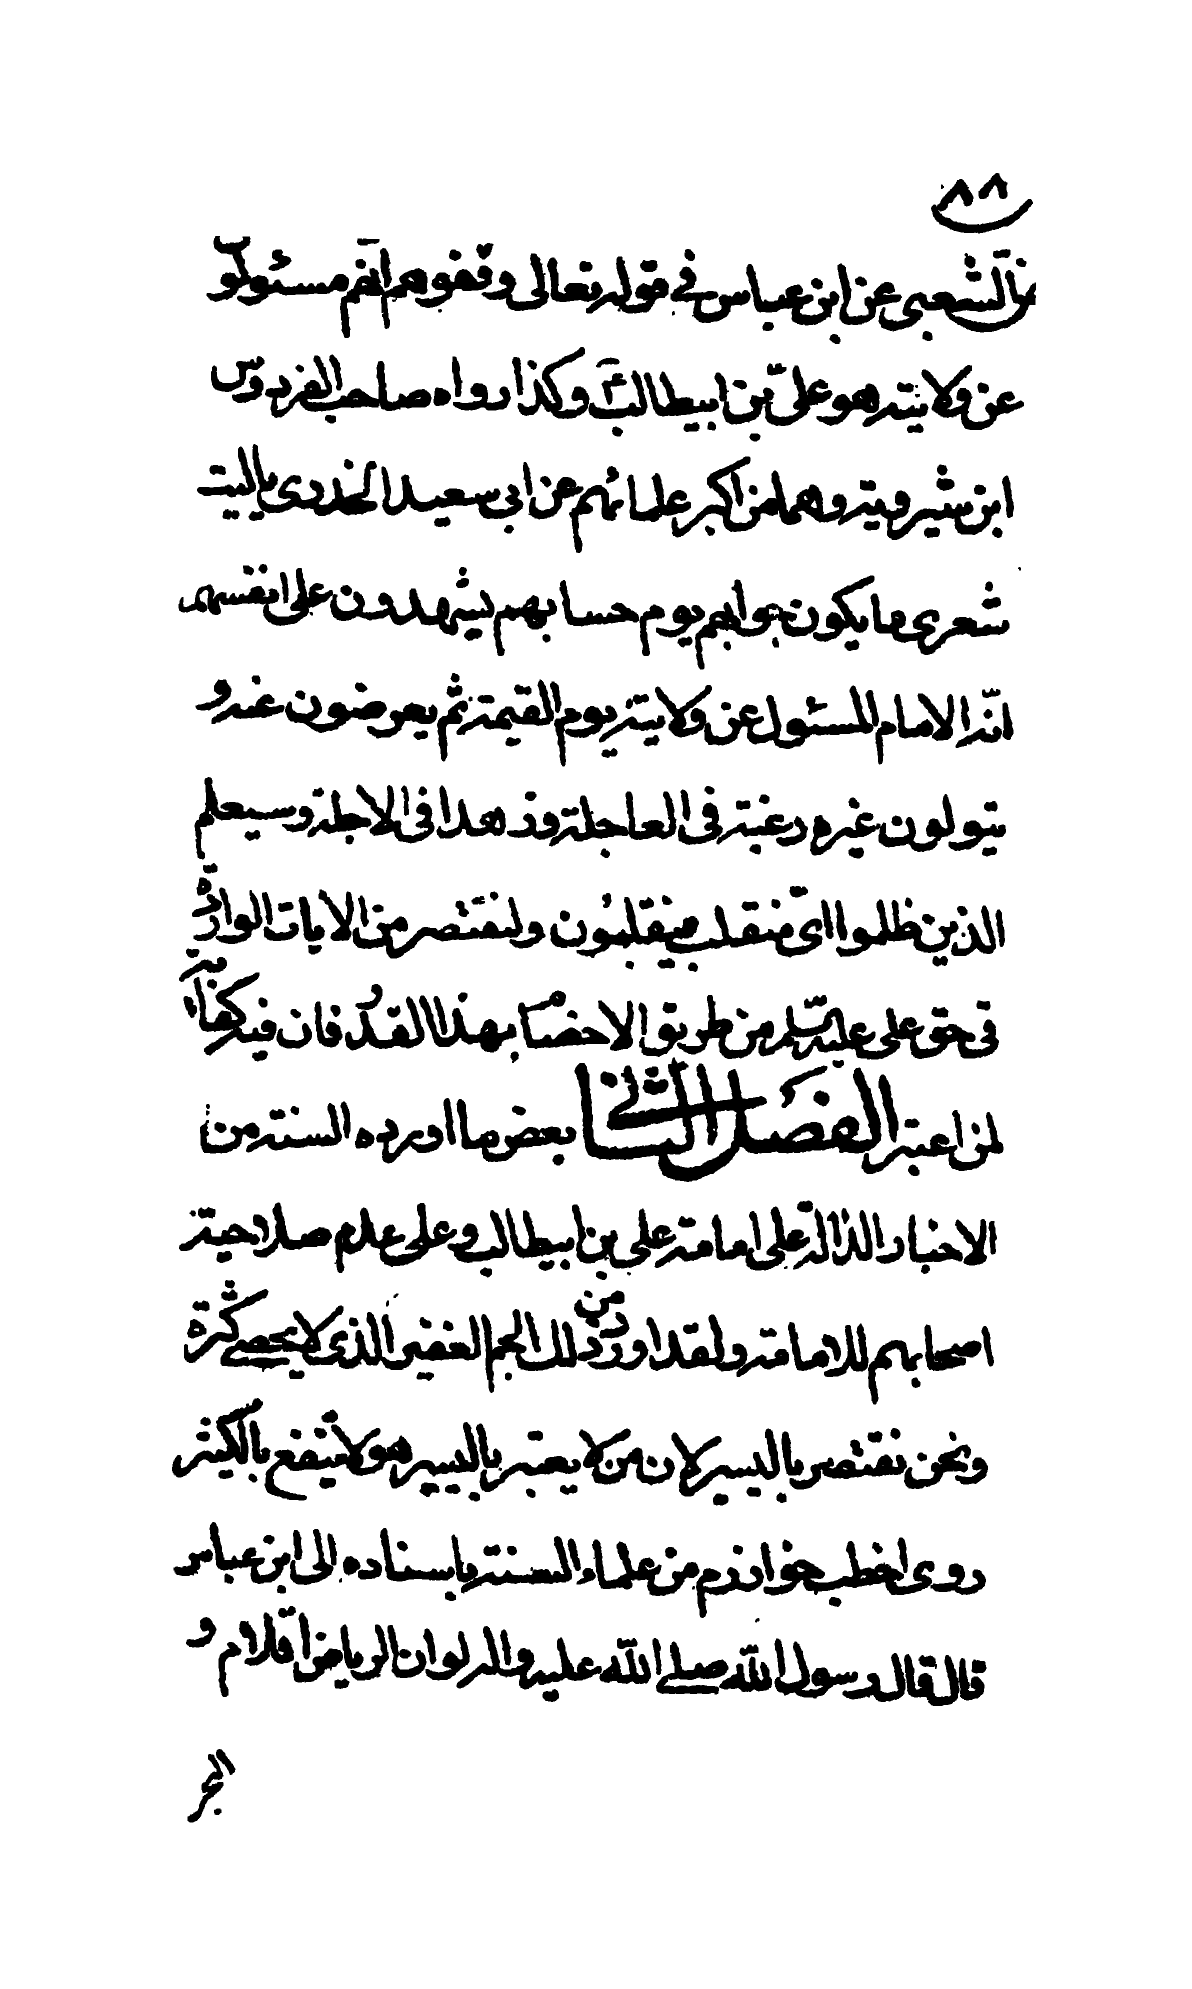 ٨٨
الشعبى عن ابن عباس فى قوله تعالى وقفوهم انهم مسئولون
عن ولايته هو علىّ بن ابيطالب ع وكذا رواه صاحب الفردوس
ابن شيرويه وهما من اكبر علمائهم عن ابى سعيد الخدرى ياليت
شعرى ما يكون جوابهم يوم حسابهم يشهدون على انفسهم
انّه الامام المسئول عن ولايته يوم القيمة ثم يعرضون عنه و
يتولون غيره رغبة فى العاجلة وزهدا فى الاجلة وسيعلم
الذين ظلموا اىّ منقلب ينقلبون ولنقتصر من الايات الواردة
فى حق على عليه السلم من طريق الاخصام بهذا القدر فان فيه كفاية
لمن اعتبر الفصل الثانى بعض ما اورده السنة من
الاخبار الدالة على امامة على بن ابيطالب وعلى عدم صلاحية
اصحابهم للامامة ولقد اوردوا من ذلك الجم الغفير الذى لا يحصى كثرة
ونحن نقتصر باليسير لان من لا يعتبر باليسير هو لا ينتفع بالكثير
روى اخطب خوارزم من علماء السنة باسناده الى ابن عباس
قال قال رسول الله صلى الله عليه واله لو ان الرياض اقلام و
البحر